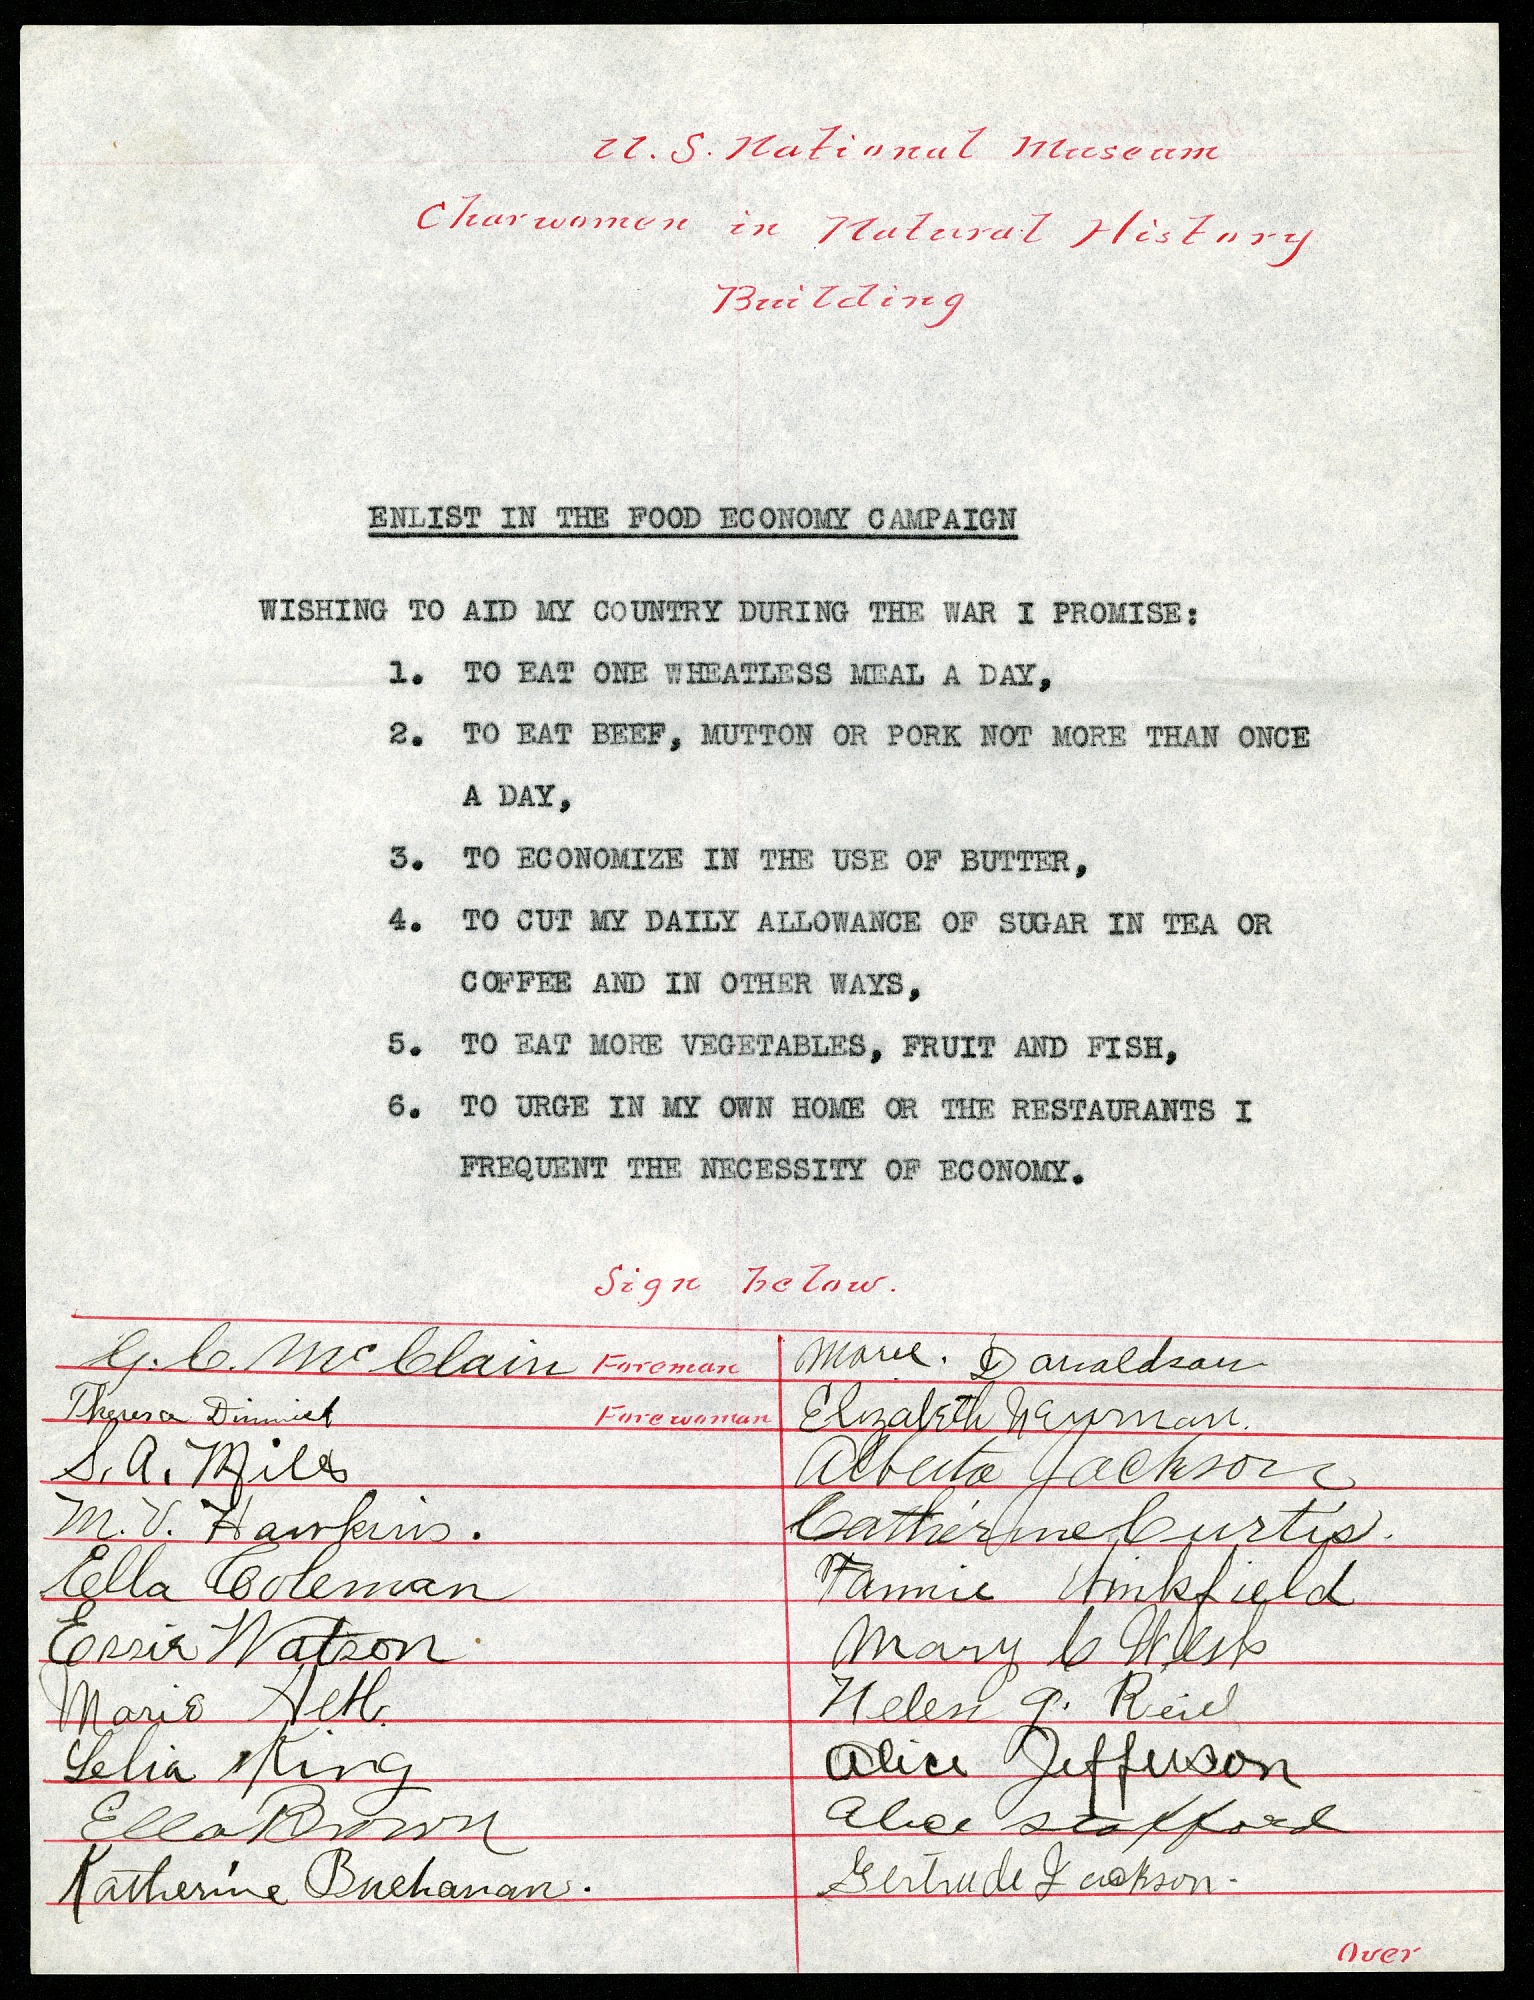 U.S. National Museum
Charwomen in Natural History
Building
ENLIST IN THE FOOD ECONOMY CAMPAIGN
WISHING TO AID MY COUNTRY DURING THE WAR I PROMISE:
1. TO EAT ONE WHEATLESS MEAL A DAY,
2. TO EAT BEEF, MUTTON OR PORK NOT MORE THAN ONCE
A DAY,
3. TO ECONOMIZE IN THE USE OF BUTTER,
4. TO CUT MY DAILY ALLOWANCE OF SUGAR IN TEA OR
COFFEE AND IN OTHER WAYS,
5. TO EAT MORE VEGETABLES, FRUIT AND FISH,
6. TO URGE IN MY OWN HOME OR THE RESTAURANTS I
FREQUENT THE NECESSITY OF ECONOMY.
Sign below.
G. C. McClain Foreman
Theresa Forewoman
S. A. Miles
M. V. Hawkins.
Ella Coleman
Essie Watson
Marie
Lelia King
Ella Brown
Katherine Buchanan.
Marie. Donaldson
Elizabeth Newman.
Alberta Jackson
Catherine Curtis.
Fannie Winkfield
Mary C West
Helen J. Reid
Alice Jefferson
Alice Stafford
Gertrude Jackson.
Over